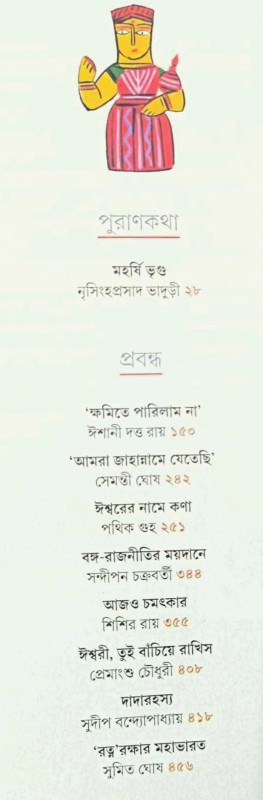 পুরাণকথা
মহর্ষি ভৃগু
নৃসিংহপ্রসাদ ভাদুড়ী ২৮
প্রবন্ধ
‘ক্ষমিতে পারিলাম না’
ঈশানী দত্ত রায় ১৫০
‘আমরা জাহান্নামে যেতেছি’
সেমন্তী ঘোষ ২৪২
ঈশ্বরের নামে কণা
পথিক গুহ ২৫১
বঙ্গ-রাজনীতির ময়দানে
সন্দীপন চক্রবর্তী ৩৪৪
আজও চমৎকার
শিশির রায় ৩৫৫
ঈশ্বরী, তুই বাঁচিয়ে রাখিস
প্রেমাংশু চৌধুরী ৪০৮
দাদারহস্য
সুদীপ বন্দ্যোপাধ্যায় ৪১৮
‘রত্ন’রক্ষার মহাভারত
সুমিত ঘোষ ৪৫৬